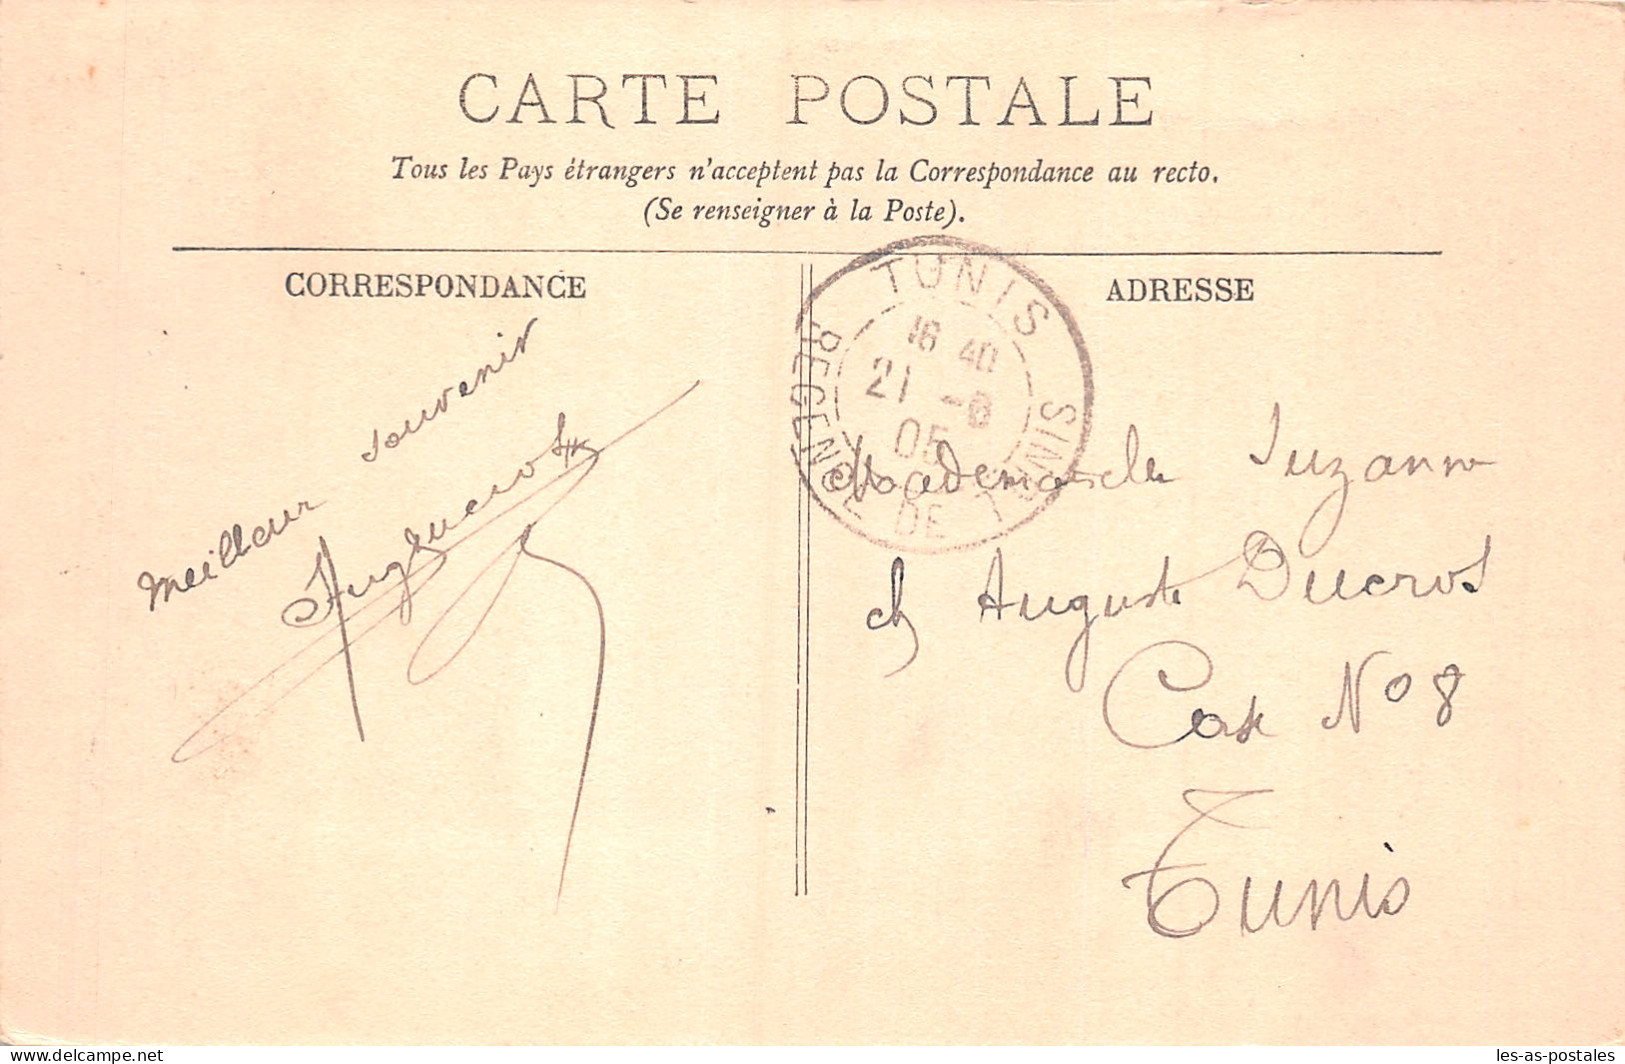 CARTE POSTALE
Tous les Pays étrangers n'acceptent pas la Correspondance au recto.
(Se renseigner à la Poste).
CORRESPONDANCE
Meilleur souvenir
ADRESSE
TUNIS
16 40
21 -6
05
REGENCE DE TUNIS
Mademoiselle Suzanne
ch Auguste Ducros
Case No 8
Tunis
delcampe.net
les-as-postales